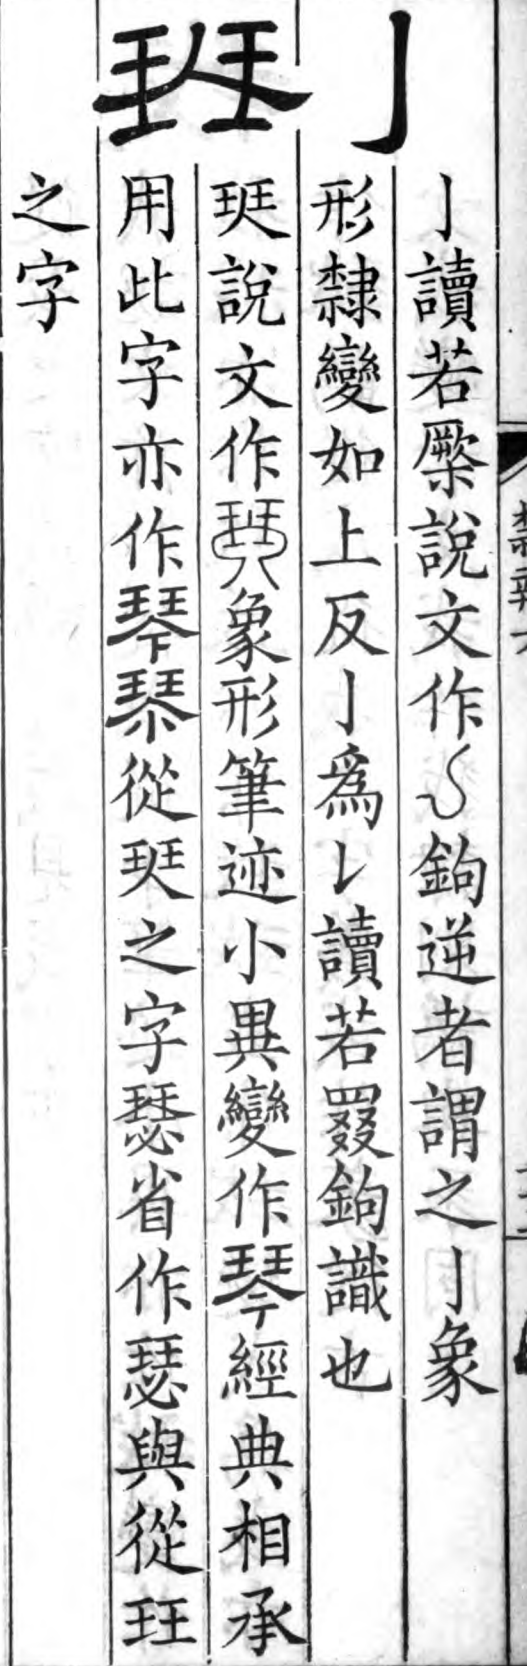 亅
亅讀若橜說文作𠄌鉤逆者謂之亅象
形隸變如上反亅為𠄌讀若罬鉤識也
珡
珡說文作珡象形筆迹小異變作琴經典相承
用此字亦作琴琴從珡之字瑟省作瑟與從玨
之字